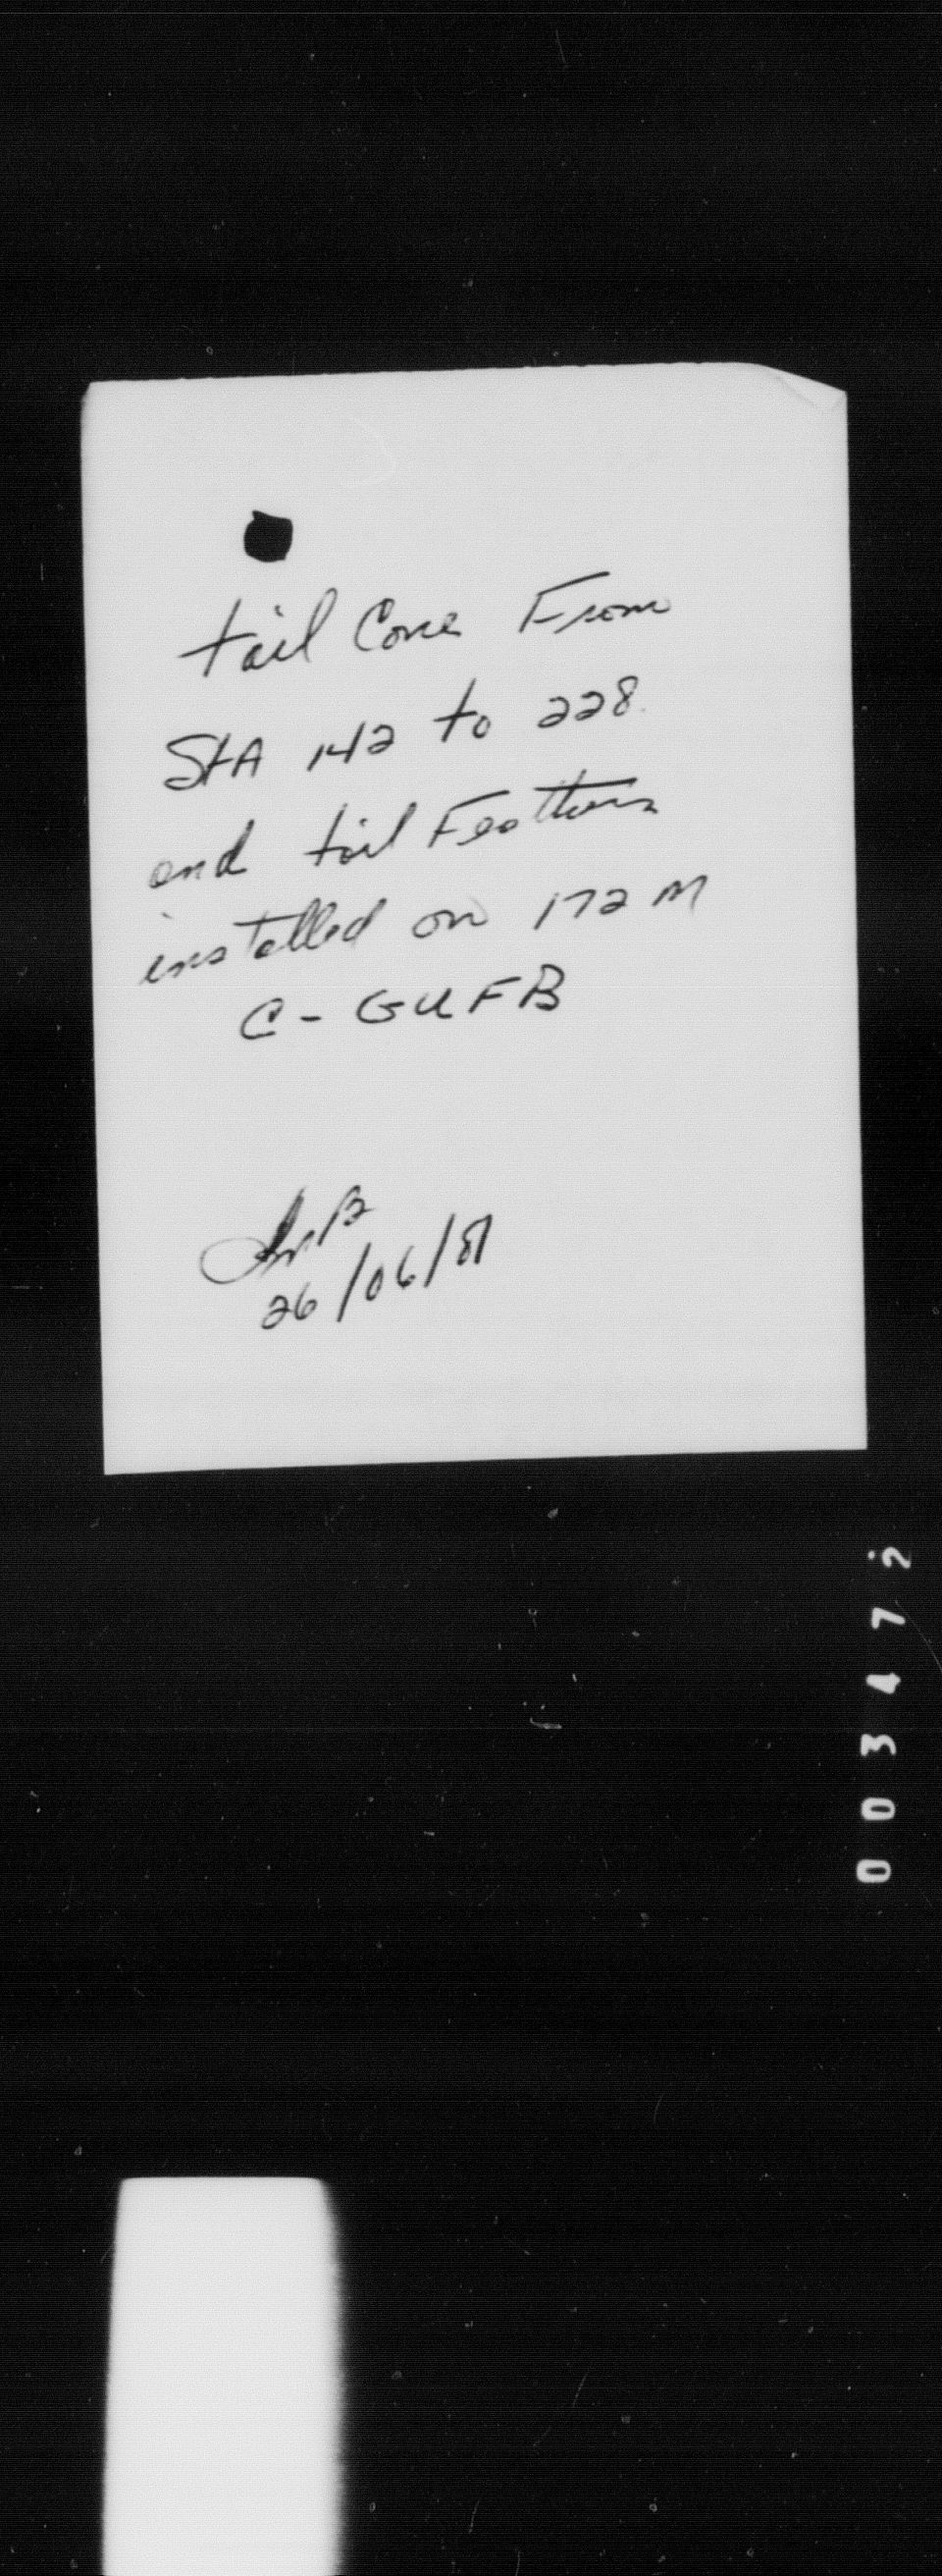 tail Cone From
StA 142 to 228
and tail Feathers
installed on 172 M
C - GUFB
26/06/81
003472